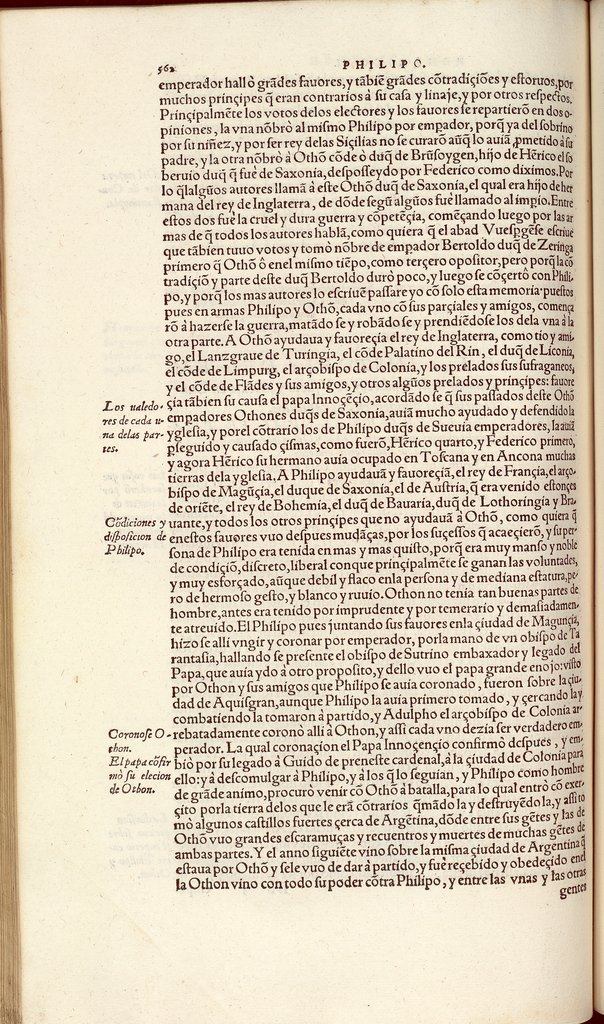 562
PHILIPO.
emperador hallò grãdes fauores, y tãbiẽ grãdes cõtradiçiões y estoruos, por
muchos prinçipes q̃ eran contrarios à su casa y linaje, y por otros respectos.
Prinçipalmẽte los votos delos electores y los fauores se repartierõ en dos o-
piniones, la vna nõbrò al mismo Philipo por empador, porq̃ ya del sobrino
por su niñez, y por ser rey delas Siçilias no se curarõ aũq̃ lo auiã pmetido à su
padre, y la otra nõbrò à Othõ cõde ò duq̃ de Brũsoygen, hijo de Hẽrico el so
beruio duq̃ q̃ fuè de Saxonia, desposseydo por Federico como diximos. Por
lo q̃l algũos autores llamã à este Othõ duq̃ de Saxonia, el qual era hijo de her
mana del rey de Inglaterra, de dõde segũ algũos fuè llamado al imp̃io. Entre
estos dos fuè la cruel y dura guerra y cõpetẽçia, começãndo luego por las ar
mas de q̃ todos los autores hablã, como quiera q̃ el abad Vuespgẽse escriuè
que tãbien tuuo votos y tomò nõbre de empador Bertoldo duq̃ de Zeringa
primero q̃ Othõ ô enel mismo tiẽpo, como terçero opositor, pero porq̃ la cõ
tradiçiõ y parte deste duq̃ Bertoldo durò poco, y luego se cõçertò con Phili-
po, y porq̃ los mas autores lo escriuẽ passarè yo cõ solo esta memoria. puestos
pues en armas Philipo y Othõ, cada vno cõ sus parçiales y amigos, comença
rõ à hazerse la guerra, matãdo se y robãdo se y prendiẽdose los dela vna à la
otra parte. A Othõ ayudaua y fauoreçia el rey de Inglaterra, como tio y ami-
go, el Lanzgraue de Turingia, el cõde Palatino del Rin, el duq̃ de Liconia,
el cõde de Limpurg, el arçobispo de Colonia, y los prelados sus sufraganeos,
y el cõde de Flãdes y sus amigos, y otros algũos prelados y prinçipes: fauore
çia tãbien su causa el papa Innoçẽçio, acordãdo se q̃ sus passados deste Othõ
empadores Othones duq̃s de Saxonia, auiã mucho ayudado y defendido la
yglesia, y por el cõtrario los de Philipo duq̃s de Sueuia emperadores, la auiã
pseguido y causado çismas, como fuerõ, Hẽrico quarto, y Federico primero,
y agora Hẽrico su hermano auia ocupado en Toscana y en Ancona muchas
tierras dela yglesia. A Philipo ayudauã y fauoreçiã, el rey de Françia, el arço-
bispo de Magũçia, el duque de Saxonia, el de Austria, q̃ era venido estonçes
de oriẽte, el rey de Bohemia, el duq̃ de Bauaria, duq̃ de Lothoringia y Bra-
uante, y todos los otros prinçipes que no ayudauã à Othõ, como quiera q̃
enestos fauores vuo despues mudãças, por los suçessos q̃ acaeçierõ, y su per-
sona de Philipo era tenida en mas y mas quisto, porq̃ era muy manso y noble
de condiçiõ, discreto, liberal conque prinçipalmẽte se ganan las voluntades,
y muy esforçado, aũque debil y flaco enla persona y de mediana estatura, pe-
ro de hermoso gesto, y blanco y ruuio. Othon no tenia tan buenas partes de
hombre, antes era tenido por imprudente y por temerario y demasiadamen-
te atreuido. El Philipo pues juntando sus fauores enla çiudad de Magunçia,
hizo se alli vngir y coronar por emperador, porla mano de vn obispo de Ta
rantasia, hallando se presente el obispo de Sutrino embaxador y legado del
Papa, que auia ydo à otro proposito, y dello vuo el papa grande enojo: visto
por Othon y sus amigos que Philipo se auia coronado, fueron sobre la çiu-
dad de Aquisgran, aunque Philipo la auia primero tomado, y çercando la y
combatiendo la tomaron à partido, y Adulpho el arçobispo de Colonia ar-
rebatadamente coronò alli à Othon, y assi cada vno dezia ser verdadero em-
perador. La qual coronaçion el Papa Innoçençio confirmò despues, y em-
biò por su legado à Guido de preneste cardenal, à la çiudad de Colonia para
ello: y à descomulgar à Philipo, y à los q̃ lo seguian, y Philipo como hombre
de grãde animo, procurò venir cõ Othõ à batalla, para lo qual entrò cõ exer-
çito por la tierra delos que le erã cõtrarios q̃mãdo la y destruyẽdo la, y assi to
mò algunos castillos fuertes çerca de Argẽtina, dõde entre sus gẽtes y las de
Othõ vuo grandes escaramuças y recuentros y muertes de muchas gẽtes de
ambas partes. Y el anno siguiẽte vino sobre la misma çiudad de Argentina q̃
estaua por Othõ y sele vuo de dar à partido, y fuè reçebido y obedeçido enel
la Othon vino con todo su poder cõtra Philipo, y entre las vnas y las otras
gentes
Los ualedo-
res de cada u-
na delas par-
tes.
Cõdiciones y
disposicion de
Philipo.
Coronose O-
thon.
El papa cõfir
mò su elecion
de Othon.